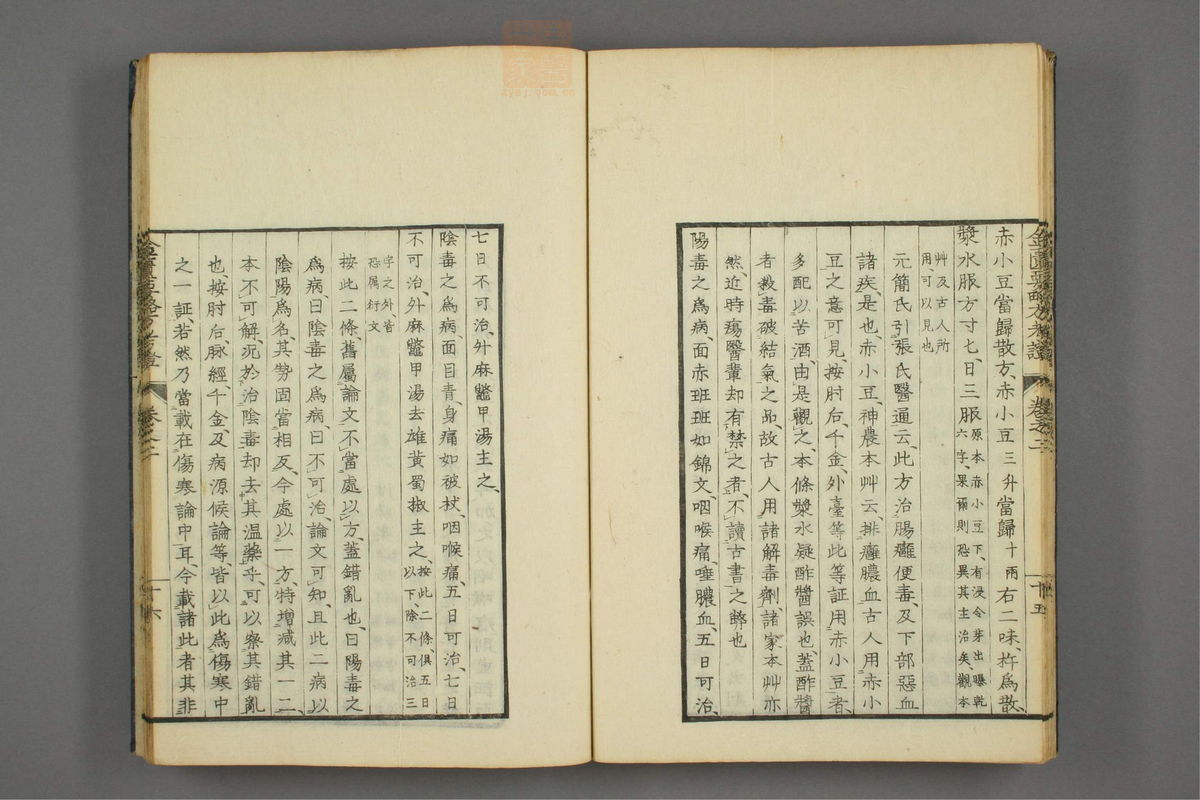 赤小豆當歸散方、赤小豆三升當歸十兩右二味、杵爲散、
漿水服方寸匕、日三服原本赤小豆下、有浸令芽出曝乾
六字、果爾則恐異其主治矣、觀本
艸及古人所
用、可以見也
元簡氏引張氏醫通云、此方治腸癰便毒、及下部惡血
諸疾、是也、赤小豆、神農本艸云、排癰膿血、古人用赤小
豆之意可見、按肘后、千金、外臺等、此等証用赤小豆者、
多配以苦酒、由是觀之、本條漿水疑酢醬誤也、蓋酢醬
者、散毒破結氣之品、故古人用諸解毒劑、諸家本艸亦
然、近時瘍醫輩却有禁之者、不讀古書之弊也
陽毒之爲病、面赤班班如錦文、咽喉痛、唾膿血、五日可治、
金匱要略方考證
卷之三
十五
七日不可治、升麻鼈甲湯主之、
陰毒之爲病、面目青、身痛如被杖、咽喉痛、五日可治、七日
不可治、升麻鼈甲湯去雄黃蜀椒主之、按此二條、俱五日
以下、除不可治三
字之外、皆
恐屬衍文
按此二條、舊屬論文、不當處以方、蓋錯亂也、曰陽毒之
爲病、曰陰毒之爲病、曰不可治、論文可知、且此二病以
陰陽爲名、其勢固當相反、今處以一方、特增減其一二、
本不可解、況於治陰毒却去其温藥乎、可以察其錯亂
也、按肘后、脉經、千金、及病源候論等、皆以此爲傷寒中
之一証、若然乃當載在傷寒論中耳、今載諸此者其非
金匱要略方考證
卷之三
十六